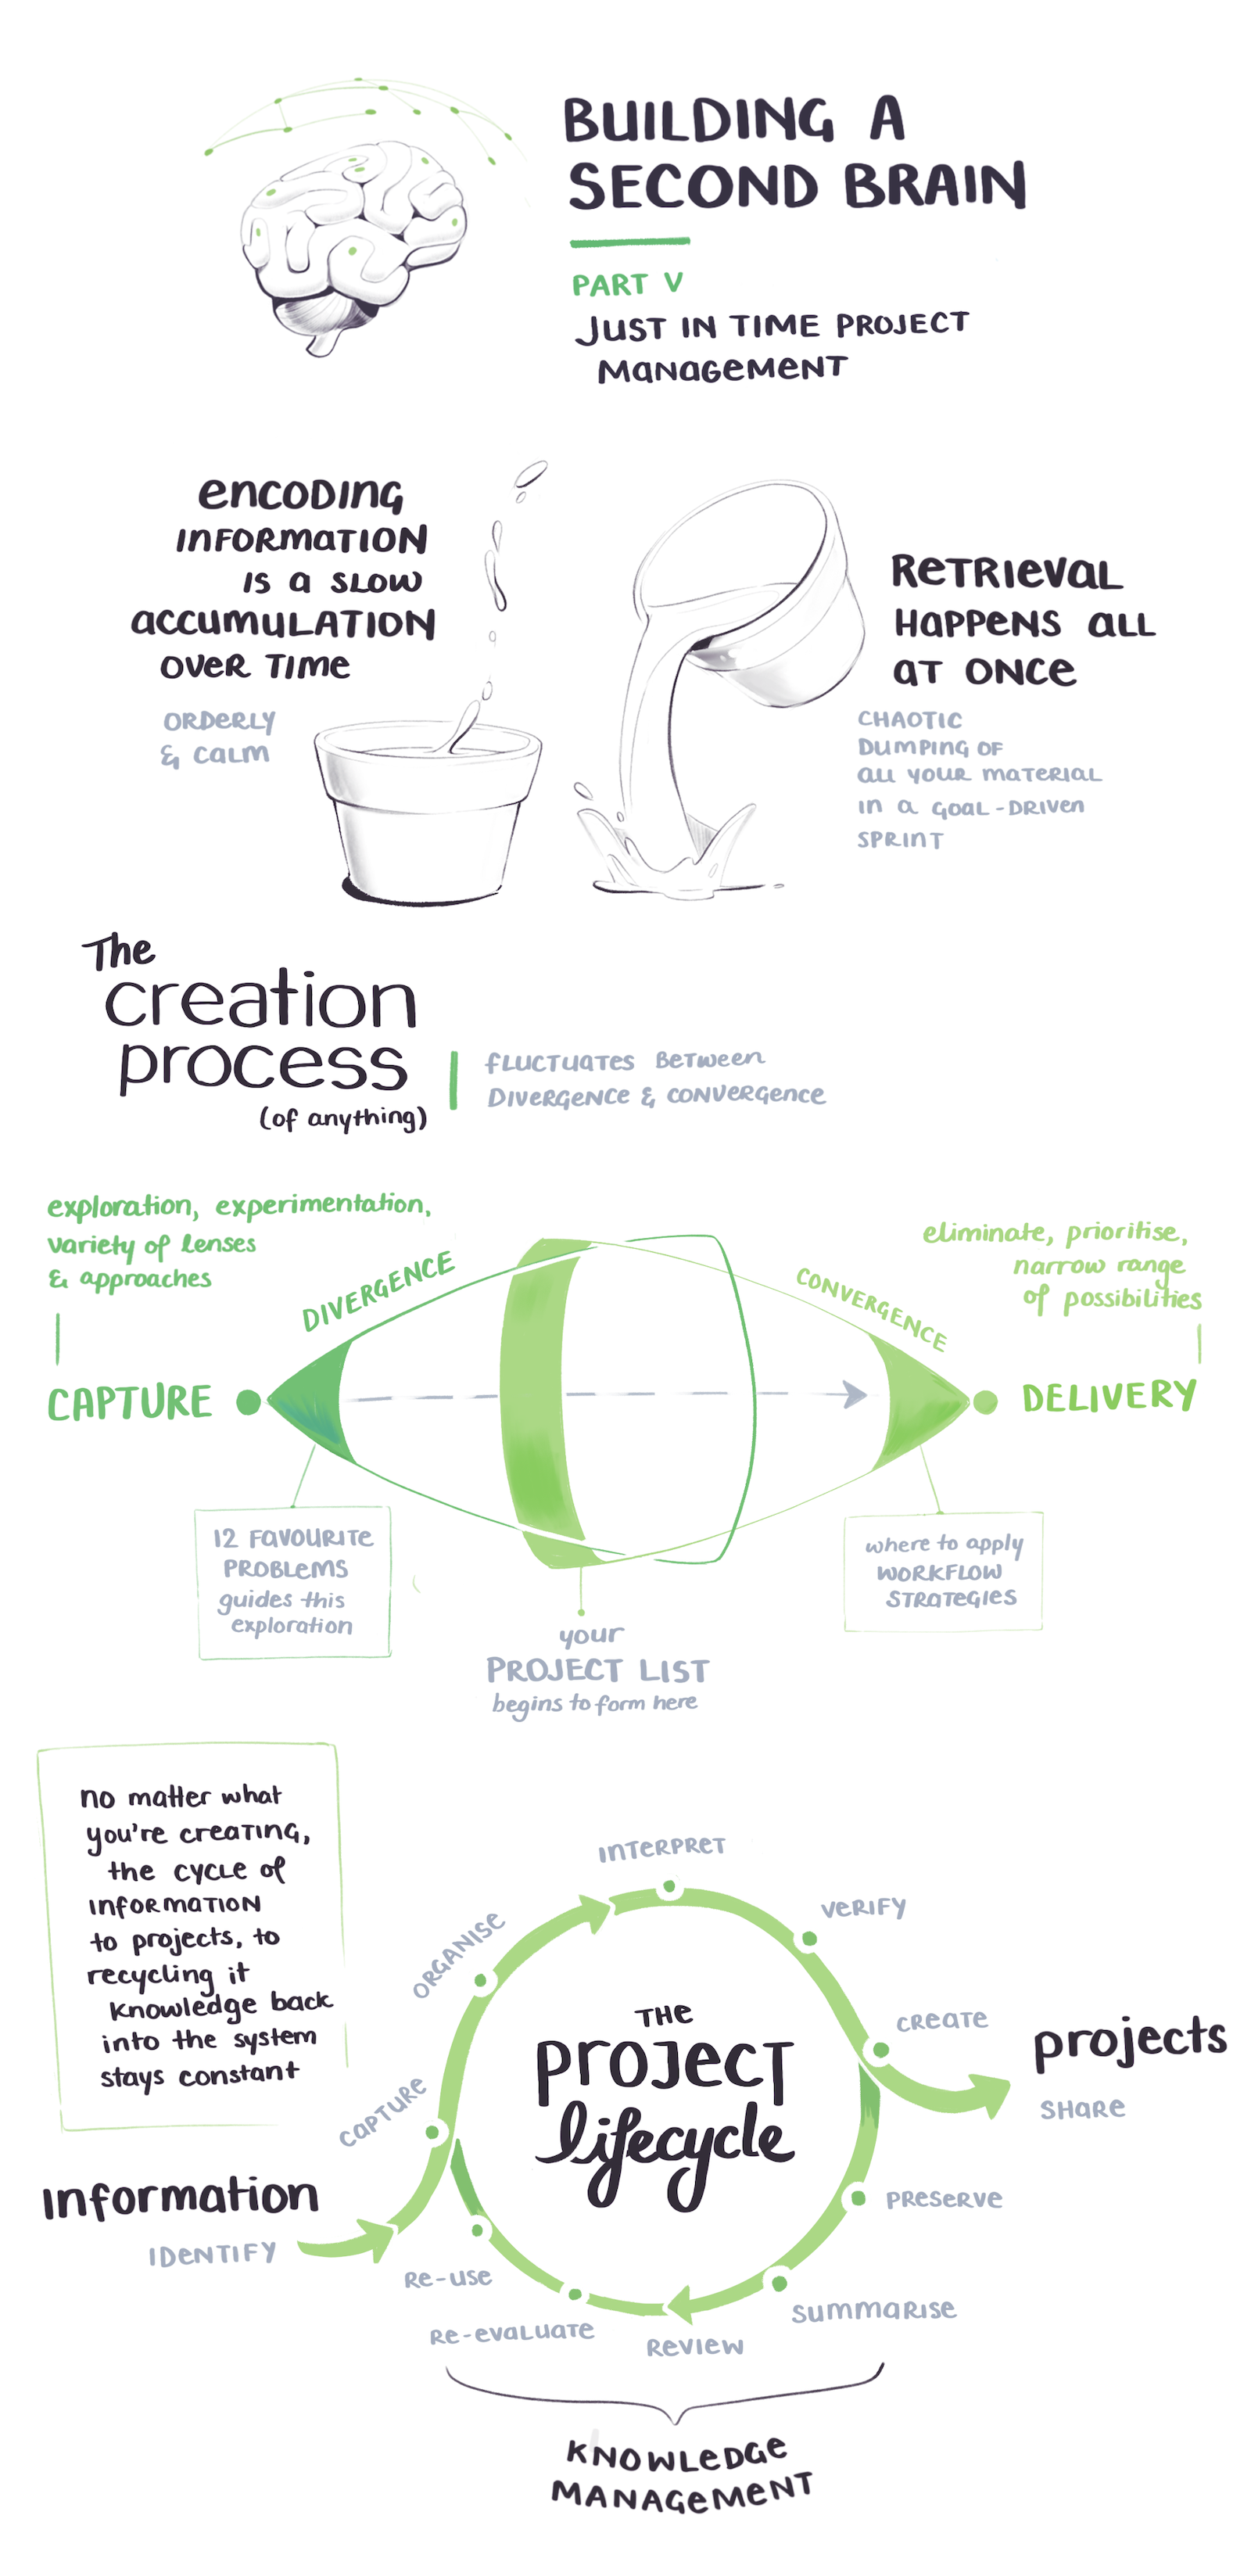 BUILDING A
SECOND BRAIN
PART V
JUST IN TIME PROJECT
MANAGEMENT
ENCODING
INFORMATION
IS A SLOW
ACCUMULATION
OVER TIME
ORDERLY
& CALM
RETRIEVAL
HAPPENS ALL
AT ONCE
CHAOTIC
DUMPING OF
ALL YOUR MATERIAL
IN A GOAL-DRIVEN
SPRINT
The
creation
process
(of anything)
FLUCTUATES BETWEEN
DIVERGENCE & CONVERGENCE
exploration, experimentation,
variety of lenses
& approaches
DIVERGENCE
CAPTURE
eliminate, prioritise,
narrow range
of possibilities
CONVERGENCE
DELIVERY
12 FAVOURITE
PROBLEMS
guides this
exploration
your
PROJECT LIST
begins to form here
where to apply
WORKFLOW
STRATEGIES
no matter what
you're creating,
the cycle of
information
to projects, to
recycling it
knowledge back
into the system
stays constant
THE
PROJECT
lifecycle
Information
IDENTIFY
CAPTURE
ORGANISE
INTERPRET
VERIFY
CREATE
projects
SHARE
PRESERVE
SUMMARISE
REVIEW
RE-EVALUATE
RE-USE
KNOWLEDGE
MANAGEMENT